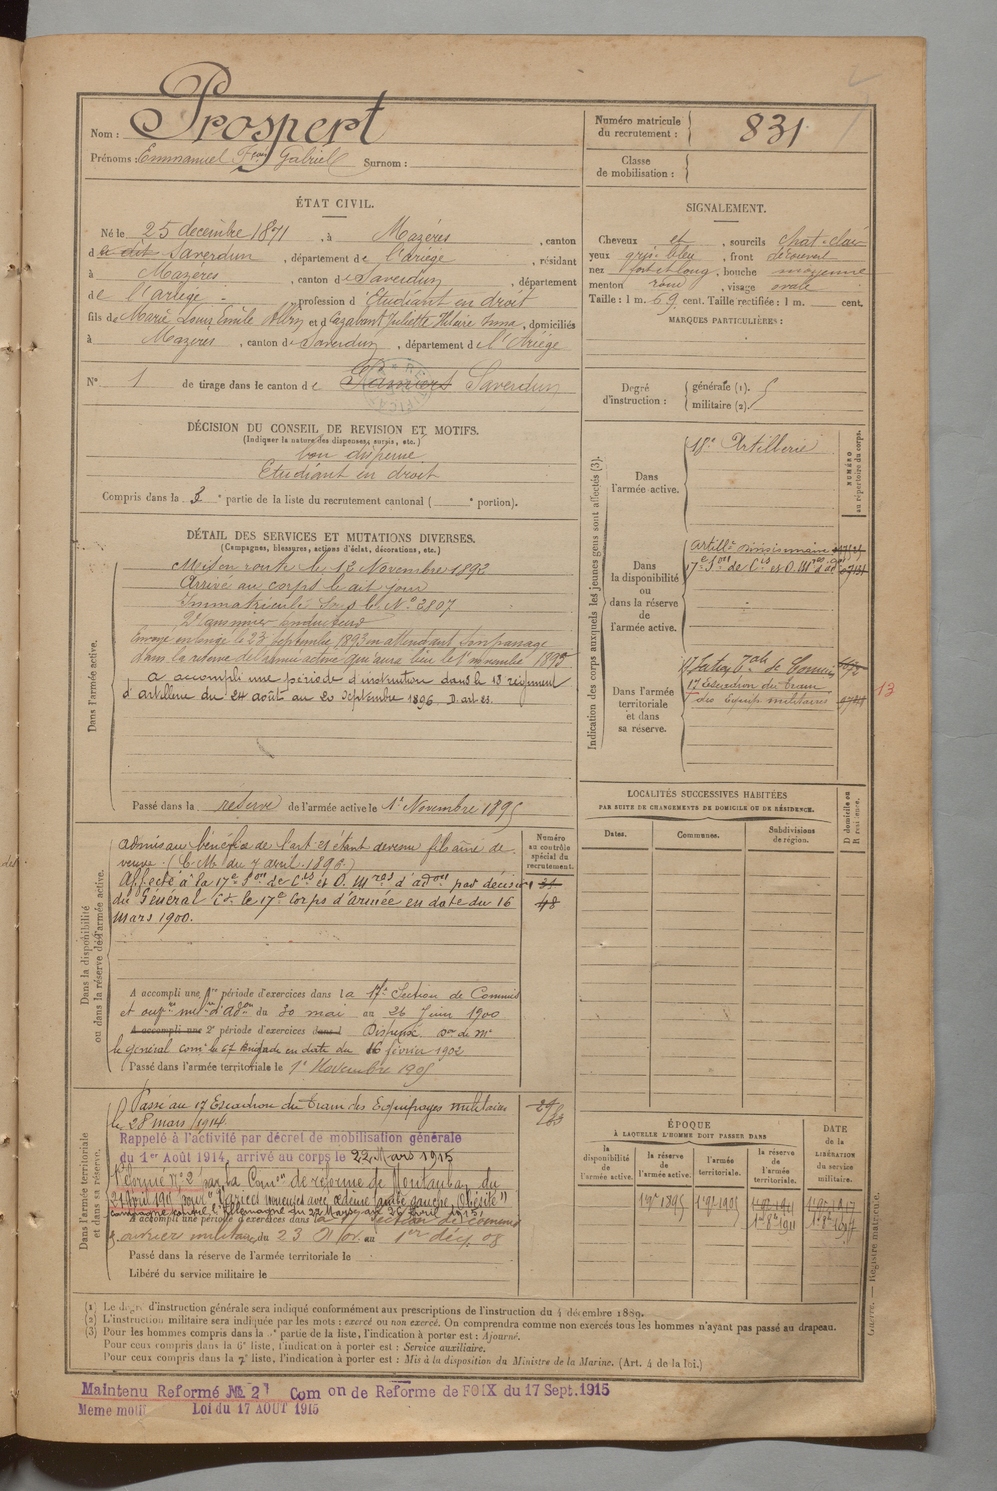 Nom : Prospert
Prénoms : Emmanuel Fçois Gabriel Surnom :
Numéro matricule du recrutement : 831
Classe de mobilisation :
ÉTAT CIVIL.
Né le 25 decembre 1871, à Mazères, canton
d le dit Saverdun, département de l'ariège, résidant
à Mazères, canton de Saverdun, département
de l'ariège, profession d'Etudiant en droit
fils de Marie Louis Emile Albin et de Cazabant Juliette Hilaire Irma, domiciliés
à Mazères, canton de Saverdun, département de l'Ariège
N° 1 de tirage dans le canton de Pamiers Saverdun
SIGNALEMENT.
Cheveux et, sourcils chat-clair
yeux gris-bleu, front découvert
nez fort et long, bouche moyenne
menton rond, visage ovale
Taille : 1 m. 69 cent. Taille rectifiée : 1 m. cent.
MARQUES PARTICULIÈRES :
Degré d'instruction : générale (1). militaire (2).
DÉCISION DU CONSEIL DE REVISION ET MOTIFS.
(Indiquer la nature des dispenses, sursis, etc.)
bon dispense
Etudiant en droit
Compris dans la 3e partie de la liste du recrutement cantonal ( e portion).
DÉTAIL DES SERVICES ET MUTATIONS DIVERSES.
(Campagnes, blessures, actions d'éclat, décorations, etc.)
Dans l'armée active.
Mis en route le 12 Novembre 1892
Arrivé au corps le dit jour
Immatriculé sous le N° 2807
2e canonnier conducteur
Envoyé en congé le 23 Septembre 1893 en attendant son passage
dans la réserve de l'armée active qui aura lieu le 1er novembre 1895
a accompli une période d'instruction dans le 18 régiment
d'artillerie du 24 août au 20 Septembre 1896
Passé dans la réserve de l'armée active le 1er Novembre 1895
Indication des corps auxquels les jeunes gens sont affectés (3).
NUMÉRO au répertoire du corps.
Dans l'armée active.
18e Artillerie
Dans la disponibilité ou dans la réserve de l'armée active.
Artillie divisionnaire
17e Son de Cis et O. Mres d'adon
Dans l'armée territoriale et dans sa réserve.
17 Escadron du Train
des Equip. militaires
13
LOCALITÉS SUCCESSIVES HABITÉES
PAR SUITE DE CHANGEMENTS DE DOMICILE OU DE RÉSIDENCE.
Dates. Communes. Subdivisions de région. D domicile ou R résidence.
Dans la disponibilité ou dans la réserve de l'armée active.
Numéro au contrôle spécial du recrutement.
admis au bénéfice de l'art. 21 étant devenu fils aîné de
veuve. (C. M. du 7 avril 1898.)
Affecté à la 17e Son de Cis et O. Mres d'adon par décision
du Général Ct le 17e Corps d'armée en date du 16
mars 1900.
48
A accompli une 1re période d'exercices dans la 17e Section de Commis
et ouvers milres d'adon du 30 mai au 26 Juin 1900
A accompli une 2e période d'exercices dans l Dispensé on de Mr
le général comt la 67 Brigade en date du 16 février 1902
Passé dans l'armée territoriale le 1er Novembre 1905
Dans l'armée territoriale et dans sa réserve.
Passé au 17 Escadron du Train des Equipages militaires
le 28 mars 1914
Rappelé à l'activité par décret de mobilisation générale
du 1er Août 1914, arrivé au corps le 22 Mars 1915
Réformé n° 2 par la Comon de réforme de Montauban du
pour "Varices avec œdème jambe gauche, Obésité"
Campagne contre l'Allemagne du 22 Mars au 26 avril 1915
A accompli une période d'exercices dans la 17 Section de commis
ouvrier militaire, du 23 Nov. au 1er déc. 08
Passé dans la réserve de l'armée territoriale le
Libéré du service militaire le
ÉPOQUE
À LAQUELLE L'HOMME DOIT PASSER DANS
la disponibilité de l'armée active. la réserve de l'armée active. l'armée territoriale. la réserve de l'armée territoriale.
DATE de la LIBÉRATION du service militaire.
1er 9bre 1895 1er 9bre 1905
(1) Le degré d'instruction générale sera indiqué conformément aux prescriptions de l'instruction du 4 décembre 1889.
(2) L'instruction militaire sera indiquée par les mots : exercé ou non exercé. On comprendra comme non exercés tous les hommes n'ayant pas passé au drapeau.
(3) Pour les hommes compris dans la 5e partie de la liste, l'indication à porter est : Ajourné.
Pour ceux compris dans la 6e liste, l'indication à porter est : Service auxiliaire.
Pour ceux compris dans la 7e liste, l'indication à porter est : Mis à la disposition du Ministre de la Marine. (Art. 4 de la loi.)
Guerre. — Registre matricule.
Maintenu Reformé № 2 Com on de Reforme de FOIX du 17 Sept. 1915
Meme motif Loi du 17 AOUT 1915